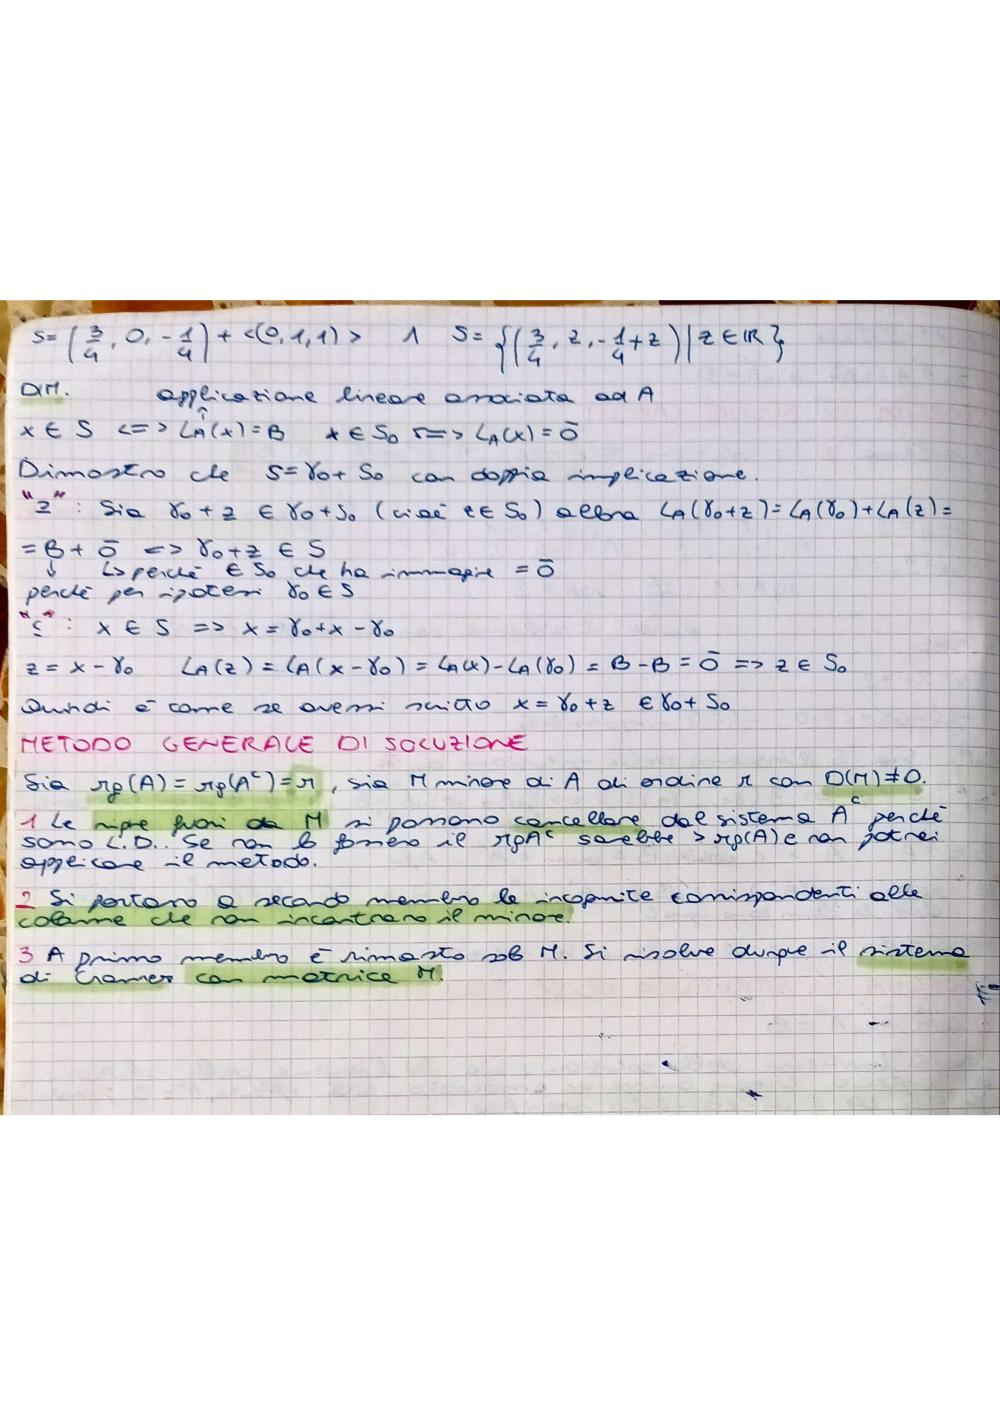 S= (3/4, 0, -1/4) + <(0,1,1)> 1 S= {(3/4, z, -1/4+z) | z ∈ ℝ}
DIM. applicazione lineare associata ad A
x ∈ S <=> LA(x)=B x ∈ S₀ <=> LA(x)=0̄
Dimostro che S=γ₀+S₀ con doppia implicazione.
"⊇": Sia γ₀+z ∈ γ₀+S₀ (cioè z∈S₀) allora LA(γ₀+z)=LA(γ₀)+LA(z)=
=B+0̄ <=> γ₀+z ∈ S
↓ ↳ perché ∈ S₀ che ha immagine = 0̄
perché per ipotesi γ₀∈S
"⊆": x ∈ S => x=γ₀+x-γ₀
z=x-γ₀ LA(z)=LA(x-γ₀)=LA(x)-LA(γ₀)=B-B=0̄ => z ∈ S₀
Quindi è come se avessi scritto x=γ₀+z ∈ γ₀+S₀
METODO GENERALE DI SOLUZIONE
Sia rg(A)=rg(Aᶜ)=r, sia M minore di A di ordine r con D(M)≠0.
1 Le righe fuori da M si possono cancellare dal sistema Aᶜ perché
sono L.D.. Se non lo fossero il rgAᶜ sarebbe >rg(A) e non potrei
applicare il metodo.
2 Si portano a secondo membro le incognite corrispondenti alle
colonne che non incontrano il minore.
3 A primo membro è rimasto solo M. Si risolve dunque il sistema
di Cramer con matrice M.